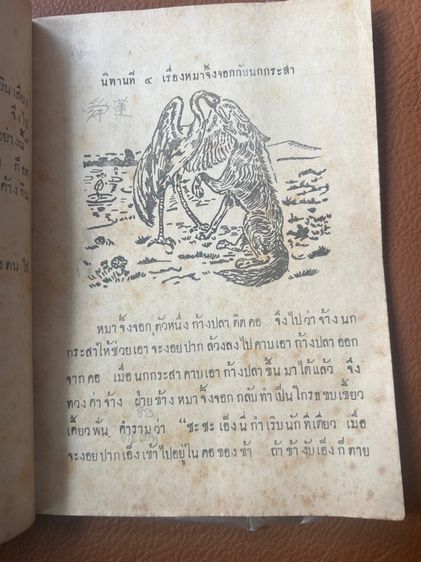 นิทานที่ ๔ เรื่องหมาจิ้งจอกกับนกกระสา
หมาจิ้งจอกตัวหนึ่ง ก้างปลาติดคอ จึงไปว่าจ้างนก
กระสาให้ช่วยเอาจะงอยปากล้วงลงไปคาบเอาก้างปลาออก
จากคอ เมื่อนกกระสาคาบเอาก้างปลาขึ้นมาได้แล้ว จึง
ทวงค่าจ้าง ฝ่ายข้างหมาจิ้งจอกกลับทำเป็นโกรธขบเขี้ยว
เคี้ยวฟัน คำรามว่า "ชะชะเอ็งนี่กำเริบนักทีเดียว เมื่อ
จะงอยปากเอ็งเข้าไปอยู่ในคอของข้า ถ้าข้างับเอ็งก็ตาย
ยินเสียง
จึงไป
อย่างนั้"
ก็ยก
ค้างกิน
คน ไป
蓮